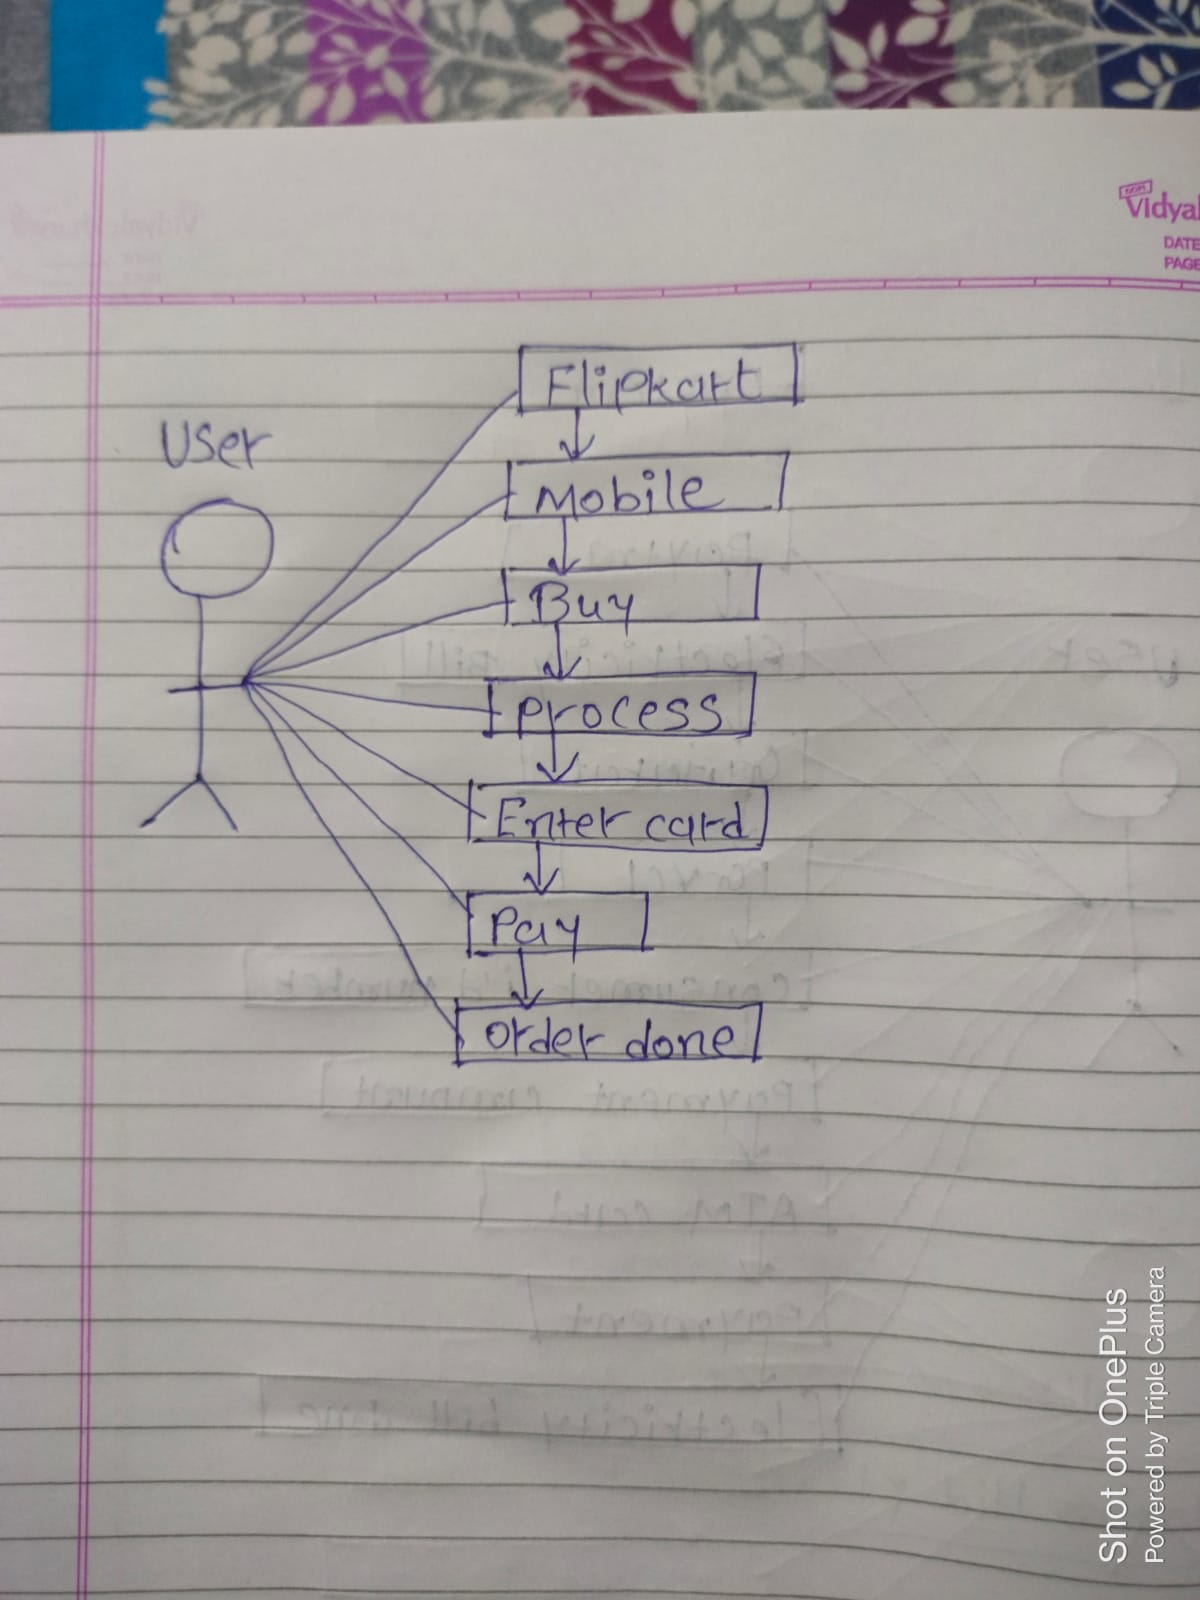 oom
Vidyal
DATE
PAGE
User
Flipkart
Mobile
Buy
process
Enter card
Pay
order done
Shot on OnePlus
Powered by Triple Camera